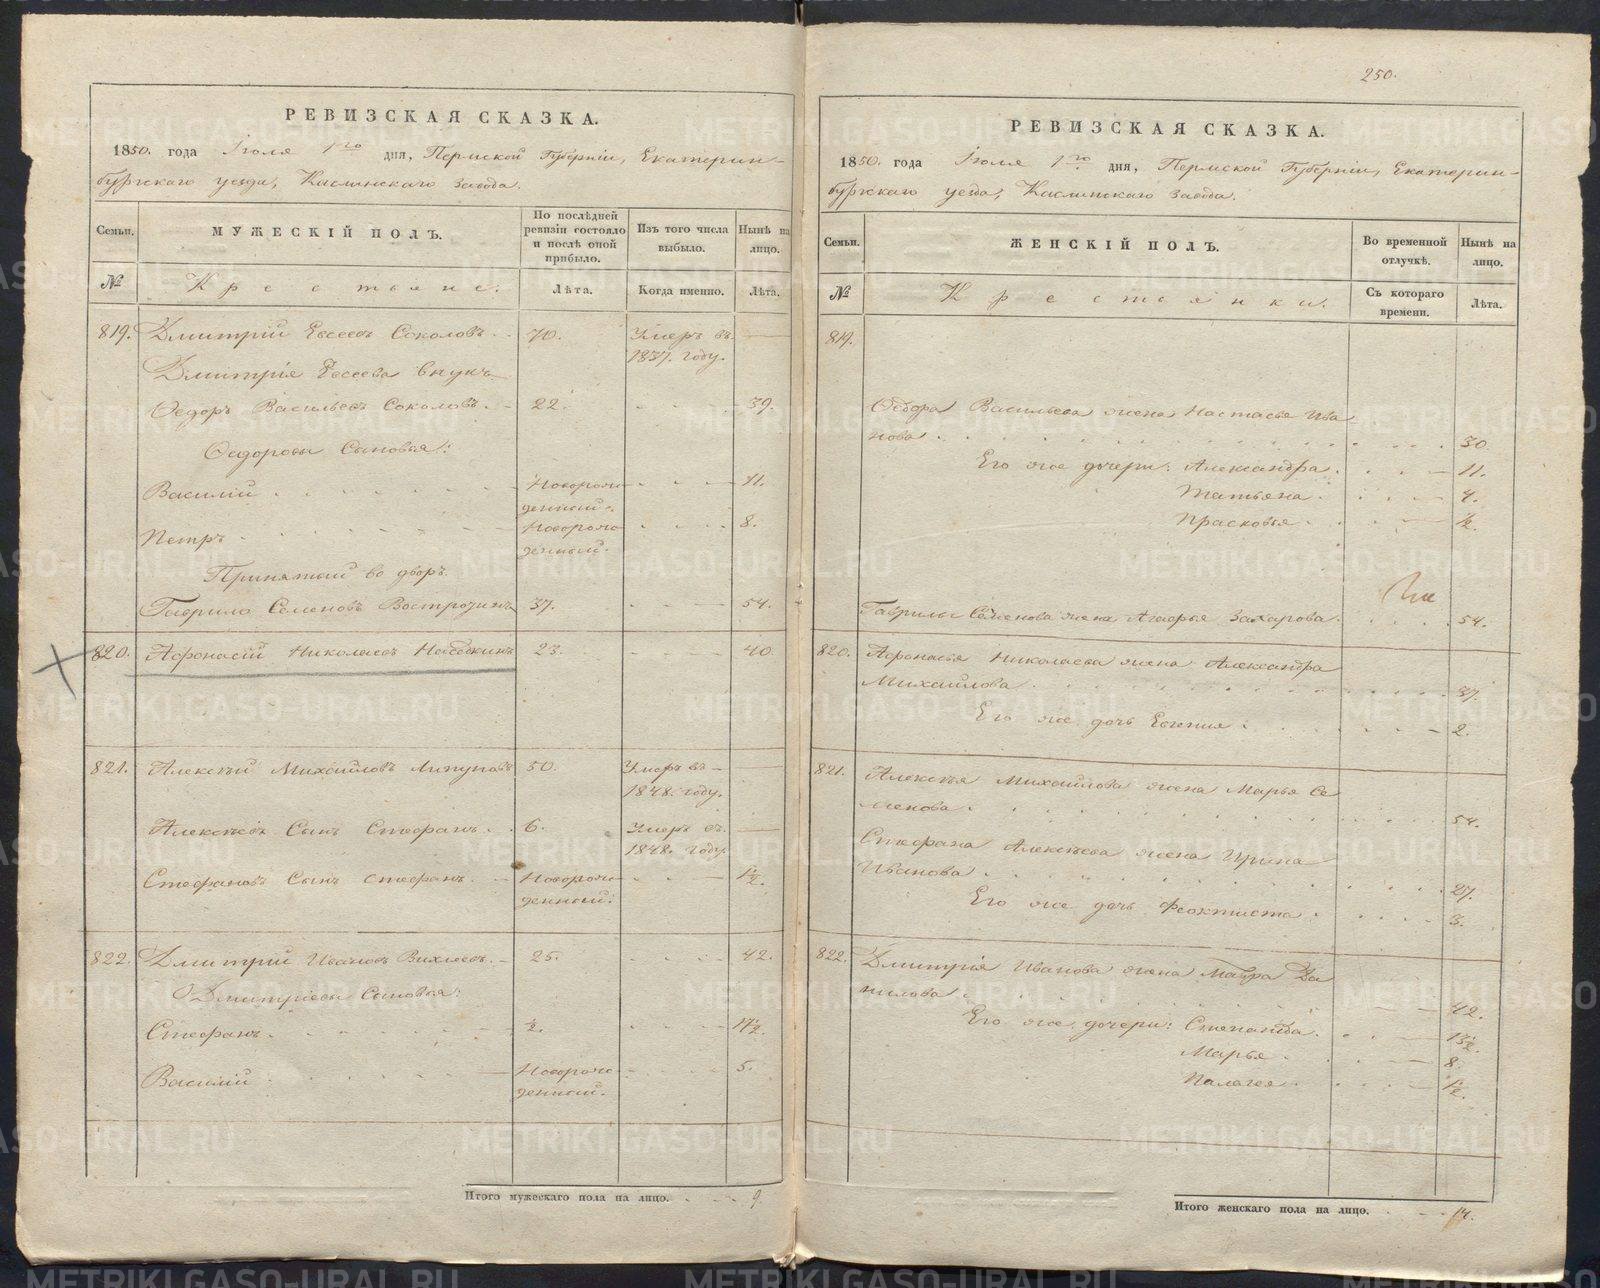 250.
РЕВИЗСКАЯ СКАЗКА.
1850. года Іюля 1го дня, Пермской Губерніи, Екатерин-
бургскаго уезда, Каслинскаго завода.
Семьи. МУЖЕСКІЙ ПОЛЪ. По послѣдней ревизіи состояло и послѣ оной прибыло. Изъ того числа выбыло. Нынѣ на лицо.
№ Крестьяне. Лѣта. Когда именно. Лѣта.
819. Дмитрій Евсеевъ Соколовъ. 70. Умеръ въ
1837. году.
Дмитрія Евсеева внукъ
Ѳедоръ Васильевъ Соколовъ. 22. 39.
Ѳедоровы Сыновья:
Василій Новорож-
денный. 11.
Петръ Новорож-
денный. 8.
Принятый во дворъ
Гаврило Семеновъ Вострочинъ 37. 54.
820. Афонасій Николаевъ Наседкинъ 23. 40
821. Алексѣй Михайловъ Липуновъ 50. Умеръ въ
1848. году.
Алексѣевъ Сынъ Стефанъ. 6. Умеръ въ
1848. году.
Стефановъ Сынъ Стефанъ. Новорож-
денный. 1½.
822. Дмитрій Ивановъ Вихлевъ. 25. 42.
Дмитріевы Сыновья:
Стефанъ. ½. 17½.
Василій Новорож-
денный. 5.
Итого мужескаго пола на лицо. 9.
РЕВИЗСКАЯ СКАЗКА.
1850 года Іюля 1го дня, Пермской Губерніи, Екатерин-
бургскаго уезда, Каслинскаго завода.
Семьи. ЖЕНСКІЙ ПОЛЪ. Во временной отлучкѣ. Нынѣ на лицо.
№ Крестьянки. Съ котораго времени. Лѣта.
819.
Ѳедора Васильева жена Настасья Ива
нова 30
Его же дочери: Александра. 11.
Татьяна. 4.
Прасковья. ½.
Гаврилы Семенова жена Агафья Захарова. 54.
820. Афонасья Николаева жена Александра
Михайлова 37.
Его же дочь Евгения. 2.
821. Алексѣя Михайлова жена Марья Се
менова. 54.
Стефана Алексѣева жена Ирина
Иванова. 27.
Его же дочь Феоктиста. 3.
822. Дмитрія Иванова жена Мавра Да
нилова. 42.
Его же дочери: Степанида. 13½.
Марья 8.
Палагея. 1½.
Итого женскаго пола на лицо. 14.
METRIKI.GASO-URAL.RU